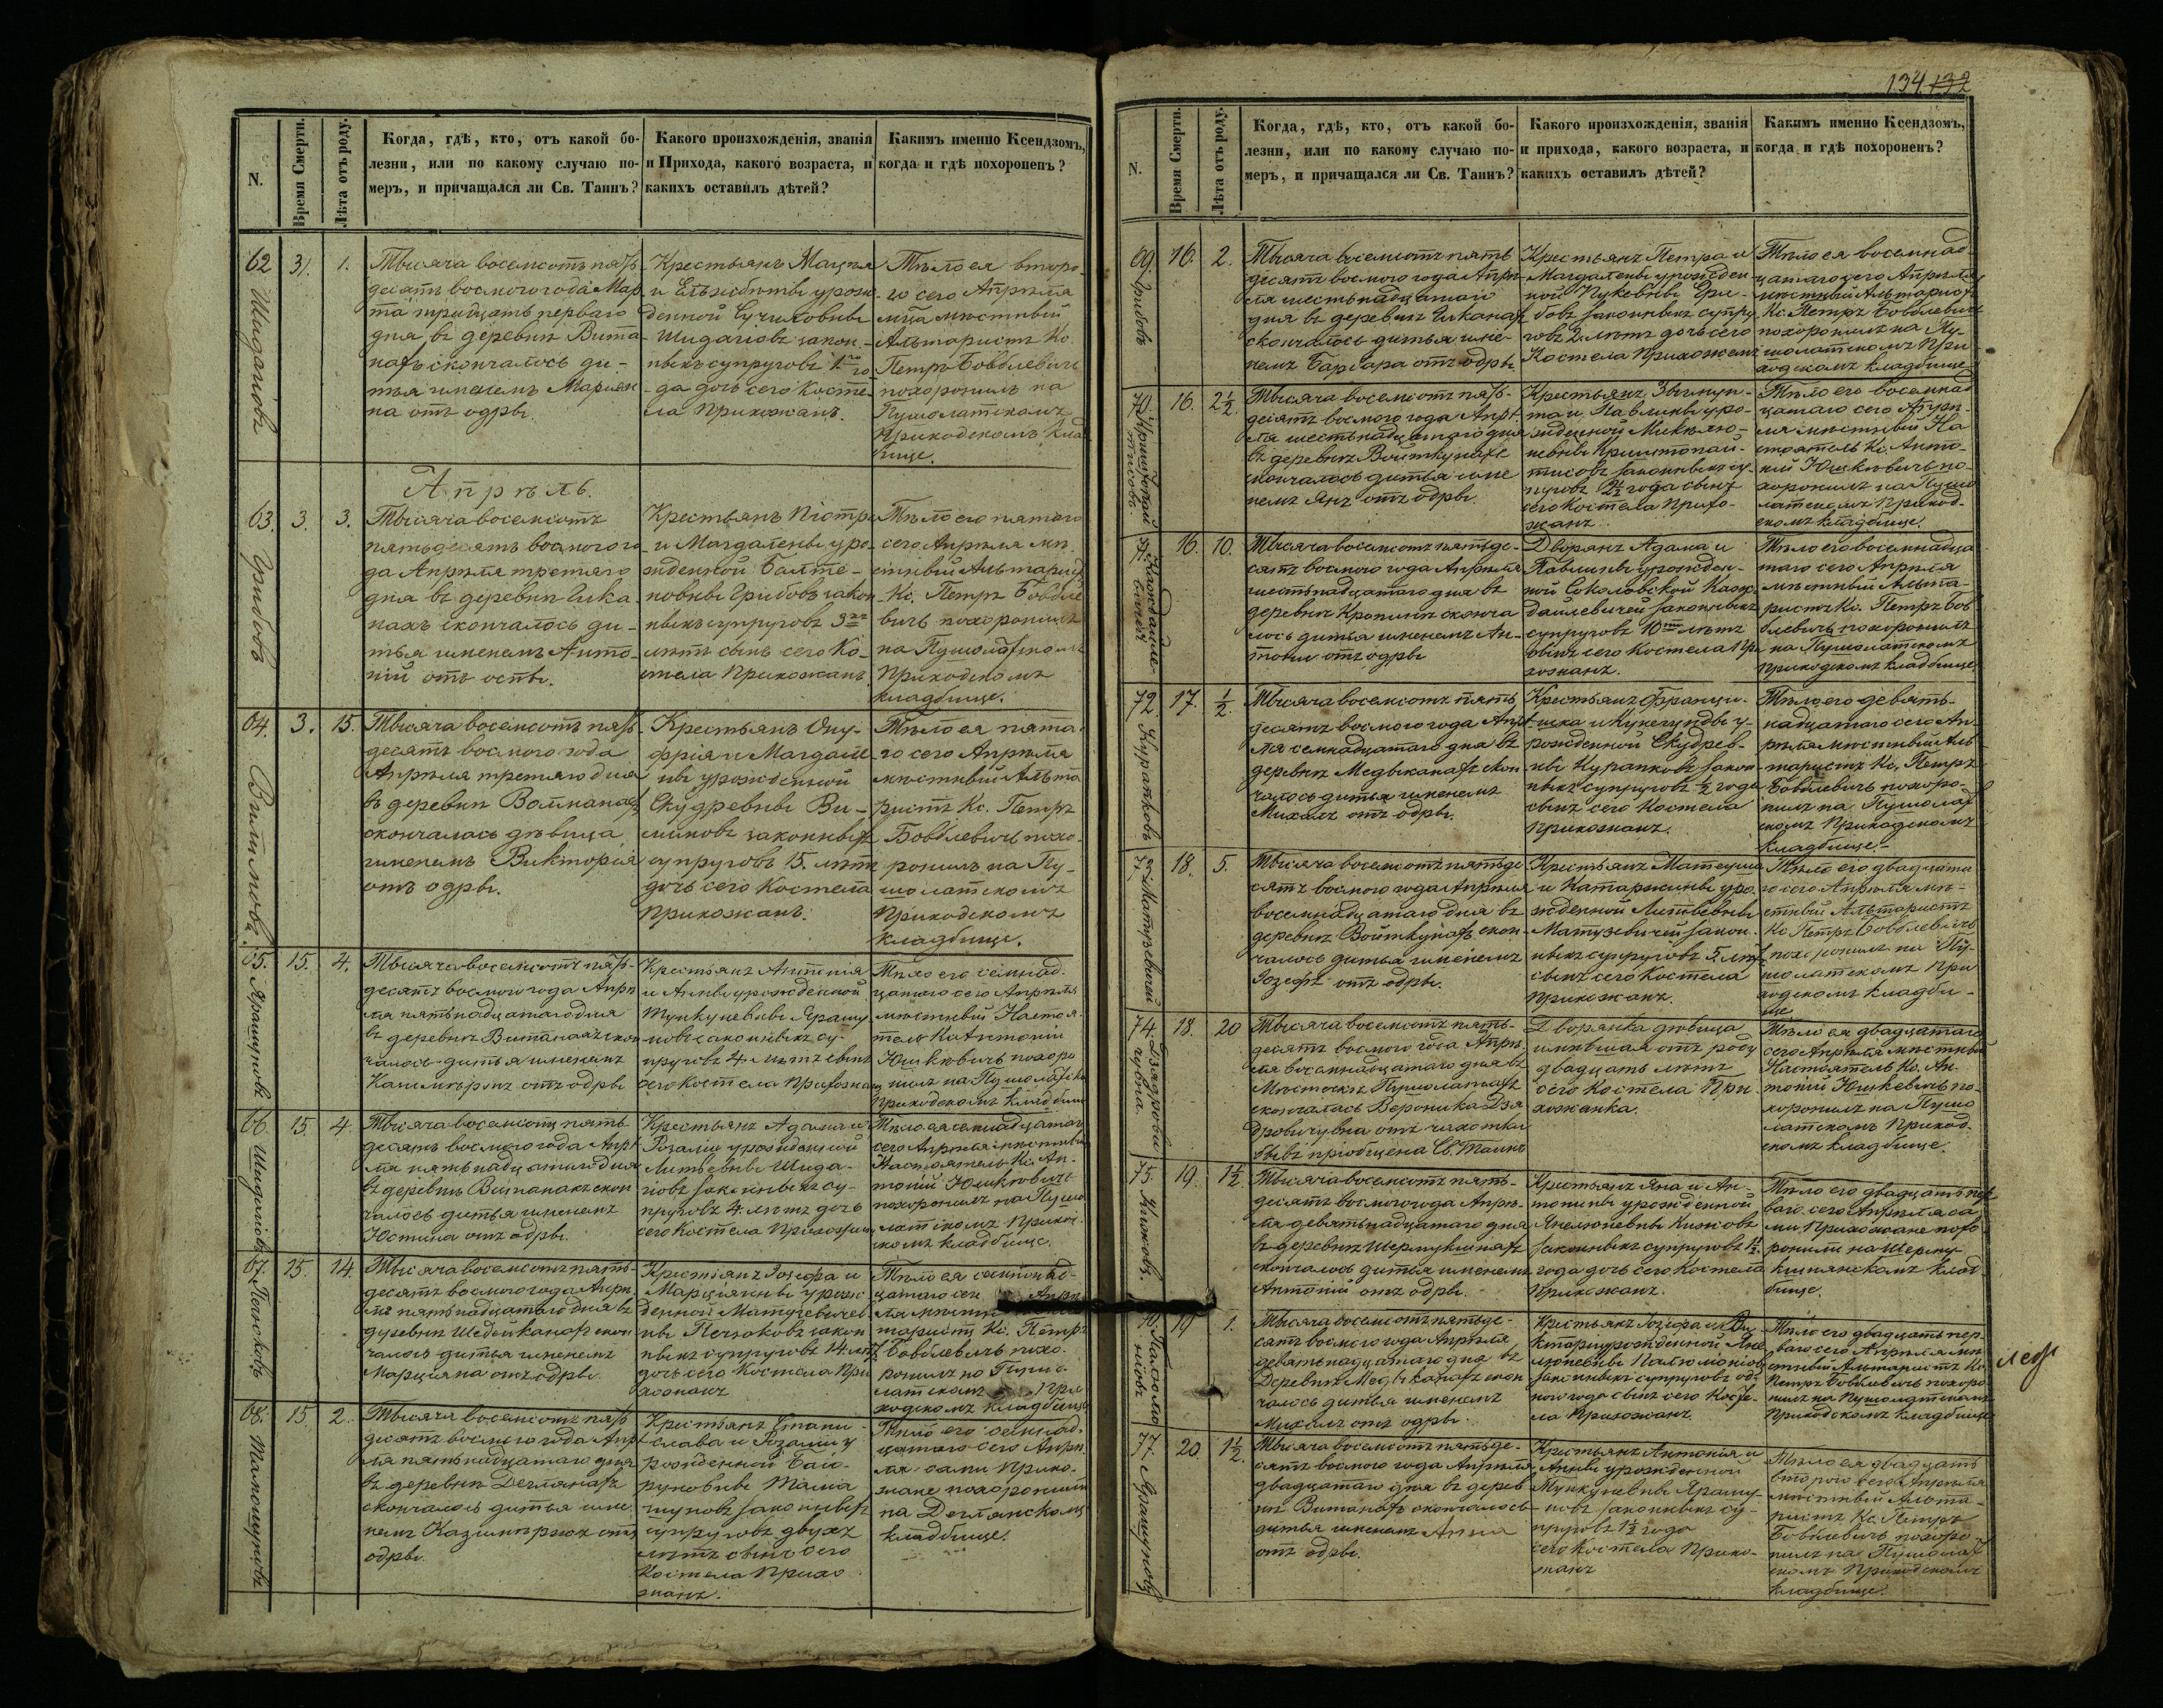 134 132
N.
Время Смерти.
Лѣта отъ роду.
Когда, гдѣ, кто, отъ какой бо-
лезни, или по какому случаю по-
меръ, и причащался ли Св. Таинъ?
Какого произхожденія, званія
и Прихода, какого возраста, и
какихъ оставилъ дѣтей?
Какимъ именно Ксендзомъ,
когда и гдѣ похороненъ?
62
Шидагіовъ
31.
1.
Тысяча восемсотъ пять
десятъ восмого года Мар
та тридцать перваго
дня въ деревнѣ Вита
нахъ скончалось ди-
тья именемъ Маріян
на отъ одры.
Крестьянъ Мацѣя
и Ельжбѣты урож
денной
Шидагіовъ закон-
ныхъ супруговъ 1го го
да дочь сего Косте
ла Прихожанъ.
Тѣло ея второ-
го сего Апрѣля
мѣстный
Альтаристъ Кс.
Петръ Бовблевичъ
похоронилъ на
Пушолатскомъ
Приходскомъ клад
бище.
Апрѣль.
63.
Грибовъ
3.
3.
Тысяча восемсотъ
пятьдесятъ восмого го
да Апрѣля третяго
дня въ деревнѣ Гика
нахъ скончалось ди-
тья именемъ Анто-
ній отъ оспы.
Крестьянъ Піотра
и Магдалены уро-
жденной Балте-
новны Грибовъ закон
ныхъ супруговъ 3хъ
лѣтъ сынъ сего Ко-
стела Прихожанъ.
Тѣло его пятаго
сего Апрѣля мѣ
стный Альтарист
Кс. Петръ Бовбле
вичъ похоронилъ
на Пушолатскомъ
Приходскомъ
кладбище.
64.
Вилимовъ.
3.
15.
Тысяча восемсотъ пять
десятъ восмого года
Апрѣля третяго дня
въ деревнѣ
скончалась дѣвица
именемъ Викторія
отъ одры.
Крестьянъ Ону-
фрія и Магдале
ны урожденной
Скудревны Ви-
лимовъ законныхъ
супруговъ 15. лѣтъ
дочь сего Костела
Прихожанъ.
Тѣло ея пята
го сего Апрѣля
мѣстный Альта
ристъ Кс. Петръ
Бовблевичъ похо
ронилъ на Пу-
шолатскомъ
Приходскомъ
кладбище.
65.
Ярашуновъ
15.
4.
Тысяча восемсотъ пять-
десятъ восмого года Апрѣ
ля пятьнадцатаго дня
въ деревнѣ Витанахъ скон
чалось дитья именемъ
Казимѣръ отъ одры
Крестьянъ Антонія
и Анны урожденной
Мункуневны Ярашу
новъ законныхъ су-
пруговъ 4 лѣтъ сынъ
сего Костела Прихожан
Тѣло его семнад-
цатаго сего Апрѣля
мѣстный Настоя-
тель Кс Антоній
Юшкевичъ похоро
нилъ на Пушолатско
Приходскомъ кладбище
66.
Шидагіовъ
15.
4
Тысяча восемсотъ пять-
десятъ восмого года Апрѣ
ля пятьнадцатаго дня
въ деревнѣ Витанахъ скон
чалось дитья именемъ
Юстина отъ одры.
Крестьянъ Адама и
Розаліи урожденной
Литвевны Шида-
гіовъ законныхъ су-
пруговъ 4. лѣтъ дочь
сего Костела Прихожанъ
Тѣло ея семнадцатаго
сего Апрѣля мѣстный
Настоятель Кс. Ан-
тоній Юшкевичъ
похоронилъ на Пушо
латскомъ Приход-
скомъ кладбище.
67.
15.
14.
Тысяча восемсотъ пять-
десятъ восмого года Апрѣ
ля пятьнадцатаго дня въ
деревнѣ Шедейканахъ скон
чалось дитья именемъ
Марціяна отъ одры.
Крестьянъ Іозефа и
Марціянны урож
денной Матузевичев
ны законн
ныхъ супруговъ 14 лѣтъ
дочь сего Костела При
хожанъ
Тѣло ея семнад-
цатаго сего Апрѣ
ля мѣстный
тарист Кс. Петръ
Бовблевичъ похо-
ронилъ на Пушо-
латскомъ При
ходскомъ кладбище
68.
Тамошуновъ
15.
2.
Тысяча восемсотъ пять
десятъ восмого года Апрѣ
ля пятьнадцатаго дня
въ деревнѣ Деглянахъ
скончалось дитья име-
немъ Казимѣръ отъ
одры.
Крестьянъ Стани-
слава и Розаліи у
рожденной
Тама
шуновъ законныхъ
супруговъ двухъ
лѣтъ сынъ сего
Костела Прихо
жанъ.
Тѣло его семнад-
цатаго сего Апрѣ
ля сами Прихо-
жане похоронили
на Деглянскомъ
кладбище.
N.
Время Смерти.
Лѣта отъ роду.
Когда, гдѣ, кто, отъ какой бо-
лезни, или по какому случаю по-
меръ, и причащался ли Св. Таинъ?
Какого произхожденія, званія
и прихода, какого возраста, и
какихъ оставилъ дѣтей?
Какимъ именно Ксендзомъ,
когда и гдѣ похороненъ?
69.
Грибовъ
16.
2.
Тысяча восемсотъ пять
десятъ восмого года Апрѣ-
ля шестьнадцатаго
дня въ деревнѣ Гиканахъ
скончалось дитья име-
немъ Барбара отъ одры.
Крестьянъ Петра и
Магдалены урожден
ной Гри-
бовъ законныхъ супру
говъ 2 лѣтъ дочь сего
Костела Прихожанъ
Тѣло ея восемнад-
цатаго сего Апрѣля
мѣстный Альтаристъ
Кс. Петръ Бовблевичъ
похоронилъ на Пу-
шолатскомъ При
ходскомъ кладбище
70.
16.
2½.
Тысяча восемсотъ пять-
десятъ восмого года Апрѣ
ля шестьнадцатаго дня
въ деревнѣ Войткунахъ
скончалось дитья име
немъ Янъ отъ одры.
Крестьянъ
и Павлины уро-
жденной Микнлю-
невны
законныхъ су-
пруговъ 2½ года сынъ
сего Костела Прихо-
жанъ
Тѣло его восемнад
цатаго сего Апрѣ-
ля мѣстный На
стоятель Кс. Анто-
ній Юшкевичъ по-
хоронилъ на Пушо
латскомъ Приход-
скомъ кладбище.
71.
16.
10.
Тысяча восемсотъ пятьде-
сятъ восмого года Апрѣля
шестьнадцатаго дня въ
деревнѣ сконча
лось дитья именемъ Ан-
тони отъ одры
Дворянъ Адама и
Павлины урожден-
ной Соколовской
законныхъ
супруговъ 10ти лѣтъ
сынъ сего Костела При
хожанъ.
Тѣло его восемнадца
таго сего Апрѣля
мѣстный Альта-
ристъ Кс. Петръ Бов
блевичъ похоронилъ
на Пушолатскомъ
Приходскомъ кладбище
72.
Курапковъ
17.
½.
Тысяча восемсотъ пять
десятъ восмого года Апрѣ
ля семнадцатаго дня въ
деревнѣ Медвіканахъ скон
чалось дитья именемъ
Михалъ отъ одры.
Крестьянъ Франци-
шка и Кунегунды у-
рожденной Скудрев-
ны Курапковъ закон
ныхъ супруговъ ½ года
сынъ сего Костела
Прихожанъ.
Тѣло его девять-
надцатаго сего Ап-
рѣля мѣстный Аль
таристъ Кс. Петръ
Бовблевичъ похоро-
нилъ на Пушолат
скомъ Приходскомъ
кладбище.
73.
Матузевичей
18.
5.
Тысяча восемсотъ пятьде
сятъ восмого года Апрѣля
восемнадцатаго дня въ
деревнѣ Войткунахъ скон
чалось дитья именемъ
Іозефъ отъ одры.
Крестьянъ Матеуша
и Катаржины уро
жденной Литвевны
Матузевичей закон-
ныхъ супруговъ 5 лѣтъ
сынъ сего Костела
Прихожанъ.
Тѣло его двадцата
го сего Апрѣля мѣ-
стный Альтаристъ
Кс Петръ Бовблевичъ
похоронилъ на Пу-
шолатскомъ При
ходскомъ кладби-
ще
74
18.
20
Тысяча восемсотъ пять-
десятъ восмого года Апрѣ
ля восемнадцатаго дня въ
Мѣстечкѣ Пушолатахъ
скончалась Вероника Дзя
дровичувна отъ чахотки
бывъ пріобщена Св. Таинъ
Дворянка дѣвица
имѣвшая отъ роду
двадцать лѣтъ
сего Костела При
хожанка.
Тѣло ея двадцатаго
сего Апрѣля мѣстный
Настоятель Кс. Ан-
тоній Юшкевичъ по-
хоронилъ на Пушо
латскомъ Приход-
скомъ кладбище.
75.
Кижовъ.
19.
1½.
Тысяча восемсотъ пять-
десятъ восмого года Апрѣ-
ля девятьнадцатаго дня
въ деревнѣ Шермукшнахъ
скончалось дитья именемъ
Антоній отъ одры.
Крестьянъ Яна и Ан-
тонины урожденной
Янелюневны Кижовъ
законныхъ супруговъ 1½
года дочь сего Костела
Прихожанъ.
Тѣло его двадцать пер
ваго сего Апрѣля са-
ми Прихожане похо
ронили на Шерму-
кшнянскомъ клад-
бище.
76.
19
1.
Тысяча восемсотъ пятьде-
сятъ восмого года Апрѣля
девятьнадцатаго дня въ
Деревнѣ Медвіканахъ скон
чалось дитья именемъ
Михалъ отъ одры.
Крестьянъ Іозефа и Ви
кторіи урожденной Яне
люневны
законныхъ супруговъ од-
ного года сынъ сего Косте-
ла Прихожанъ.
Тѣло его двадцать пер-
ваго сего Апрѣля мѣ
стный Альтаристъ Кс
Петръ Бовблевичъ похоро
нилъ на Пушолатскомъ
Приходскомъ кладбище
77.
Ярашуновъ
20.
1½.
Тысяча восемсотъ пятьде-
сятъ восмого года Апрѣля
двадцатаго дня въ дерев
нѣ Витанахъ скончалось
дитья именемъ Анна
отъ одры.
Крестьянъ Антонія и
Анны урожденной
Мункуневны Ярашу-
новъ законныхъ су-
пруговъ 1½ года
сего Костела Прихо-
жанъ
Тѣло ея двадцать
второго сего Апрѣля
мѣстный Альта-
ристъ Кс. Петръ
Бовблевичъ похоро
нилъ на Пушолат
скомъ Приходскомъ
кладбище.